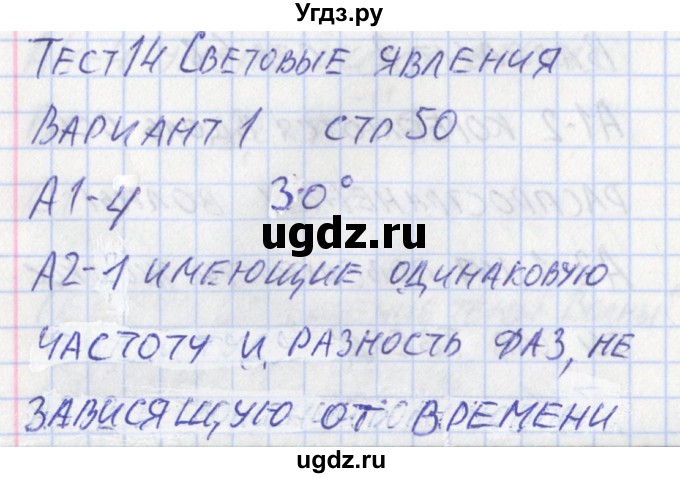 Угдз.ру
Тест 14 Световые явления
Вариант 1 стр 50
А1-4 30°
ugdz.ru
А2-1 имеющие одинаковую
частоту и разность фаз, не
зависящую от времени
ugdz.ru